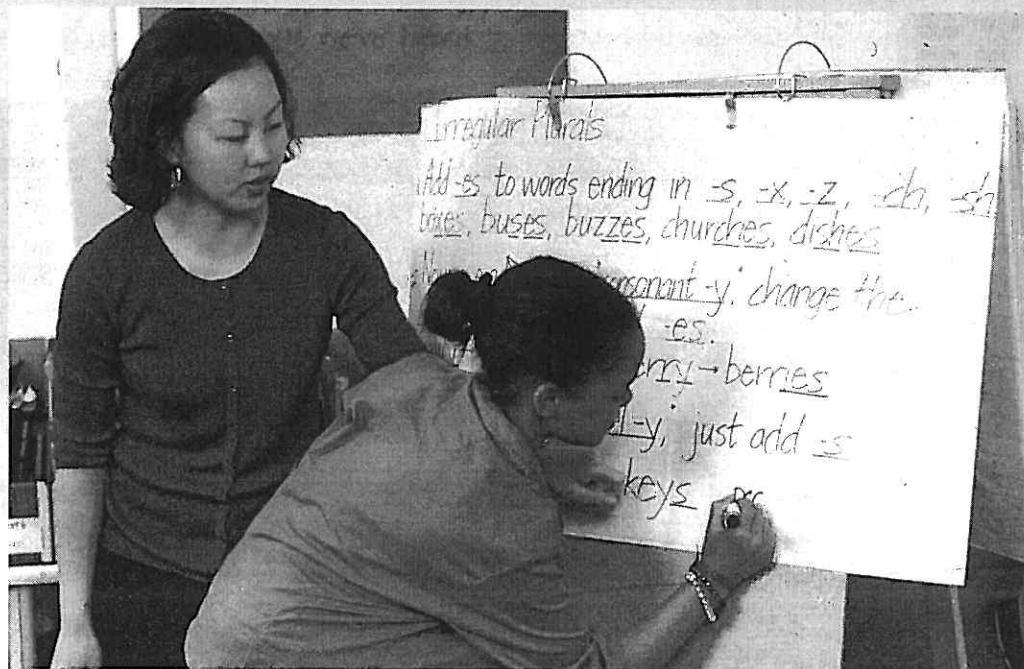 Irregular Plurals
Add -es to words ending in -s, -x, -z, -ch, -sh
boxes, buses, buzzes, churches, dishes
consonant -y, change the
-es.
berries
-y, just add -s
keys